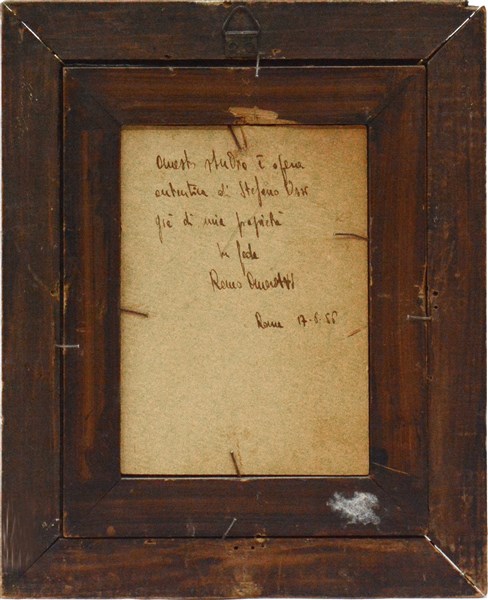 Questo studio è opera
autentica di Stefano Ussi
già di mia proprietà
In fede
Remo
Roma 17-6-66